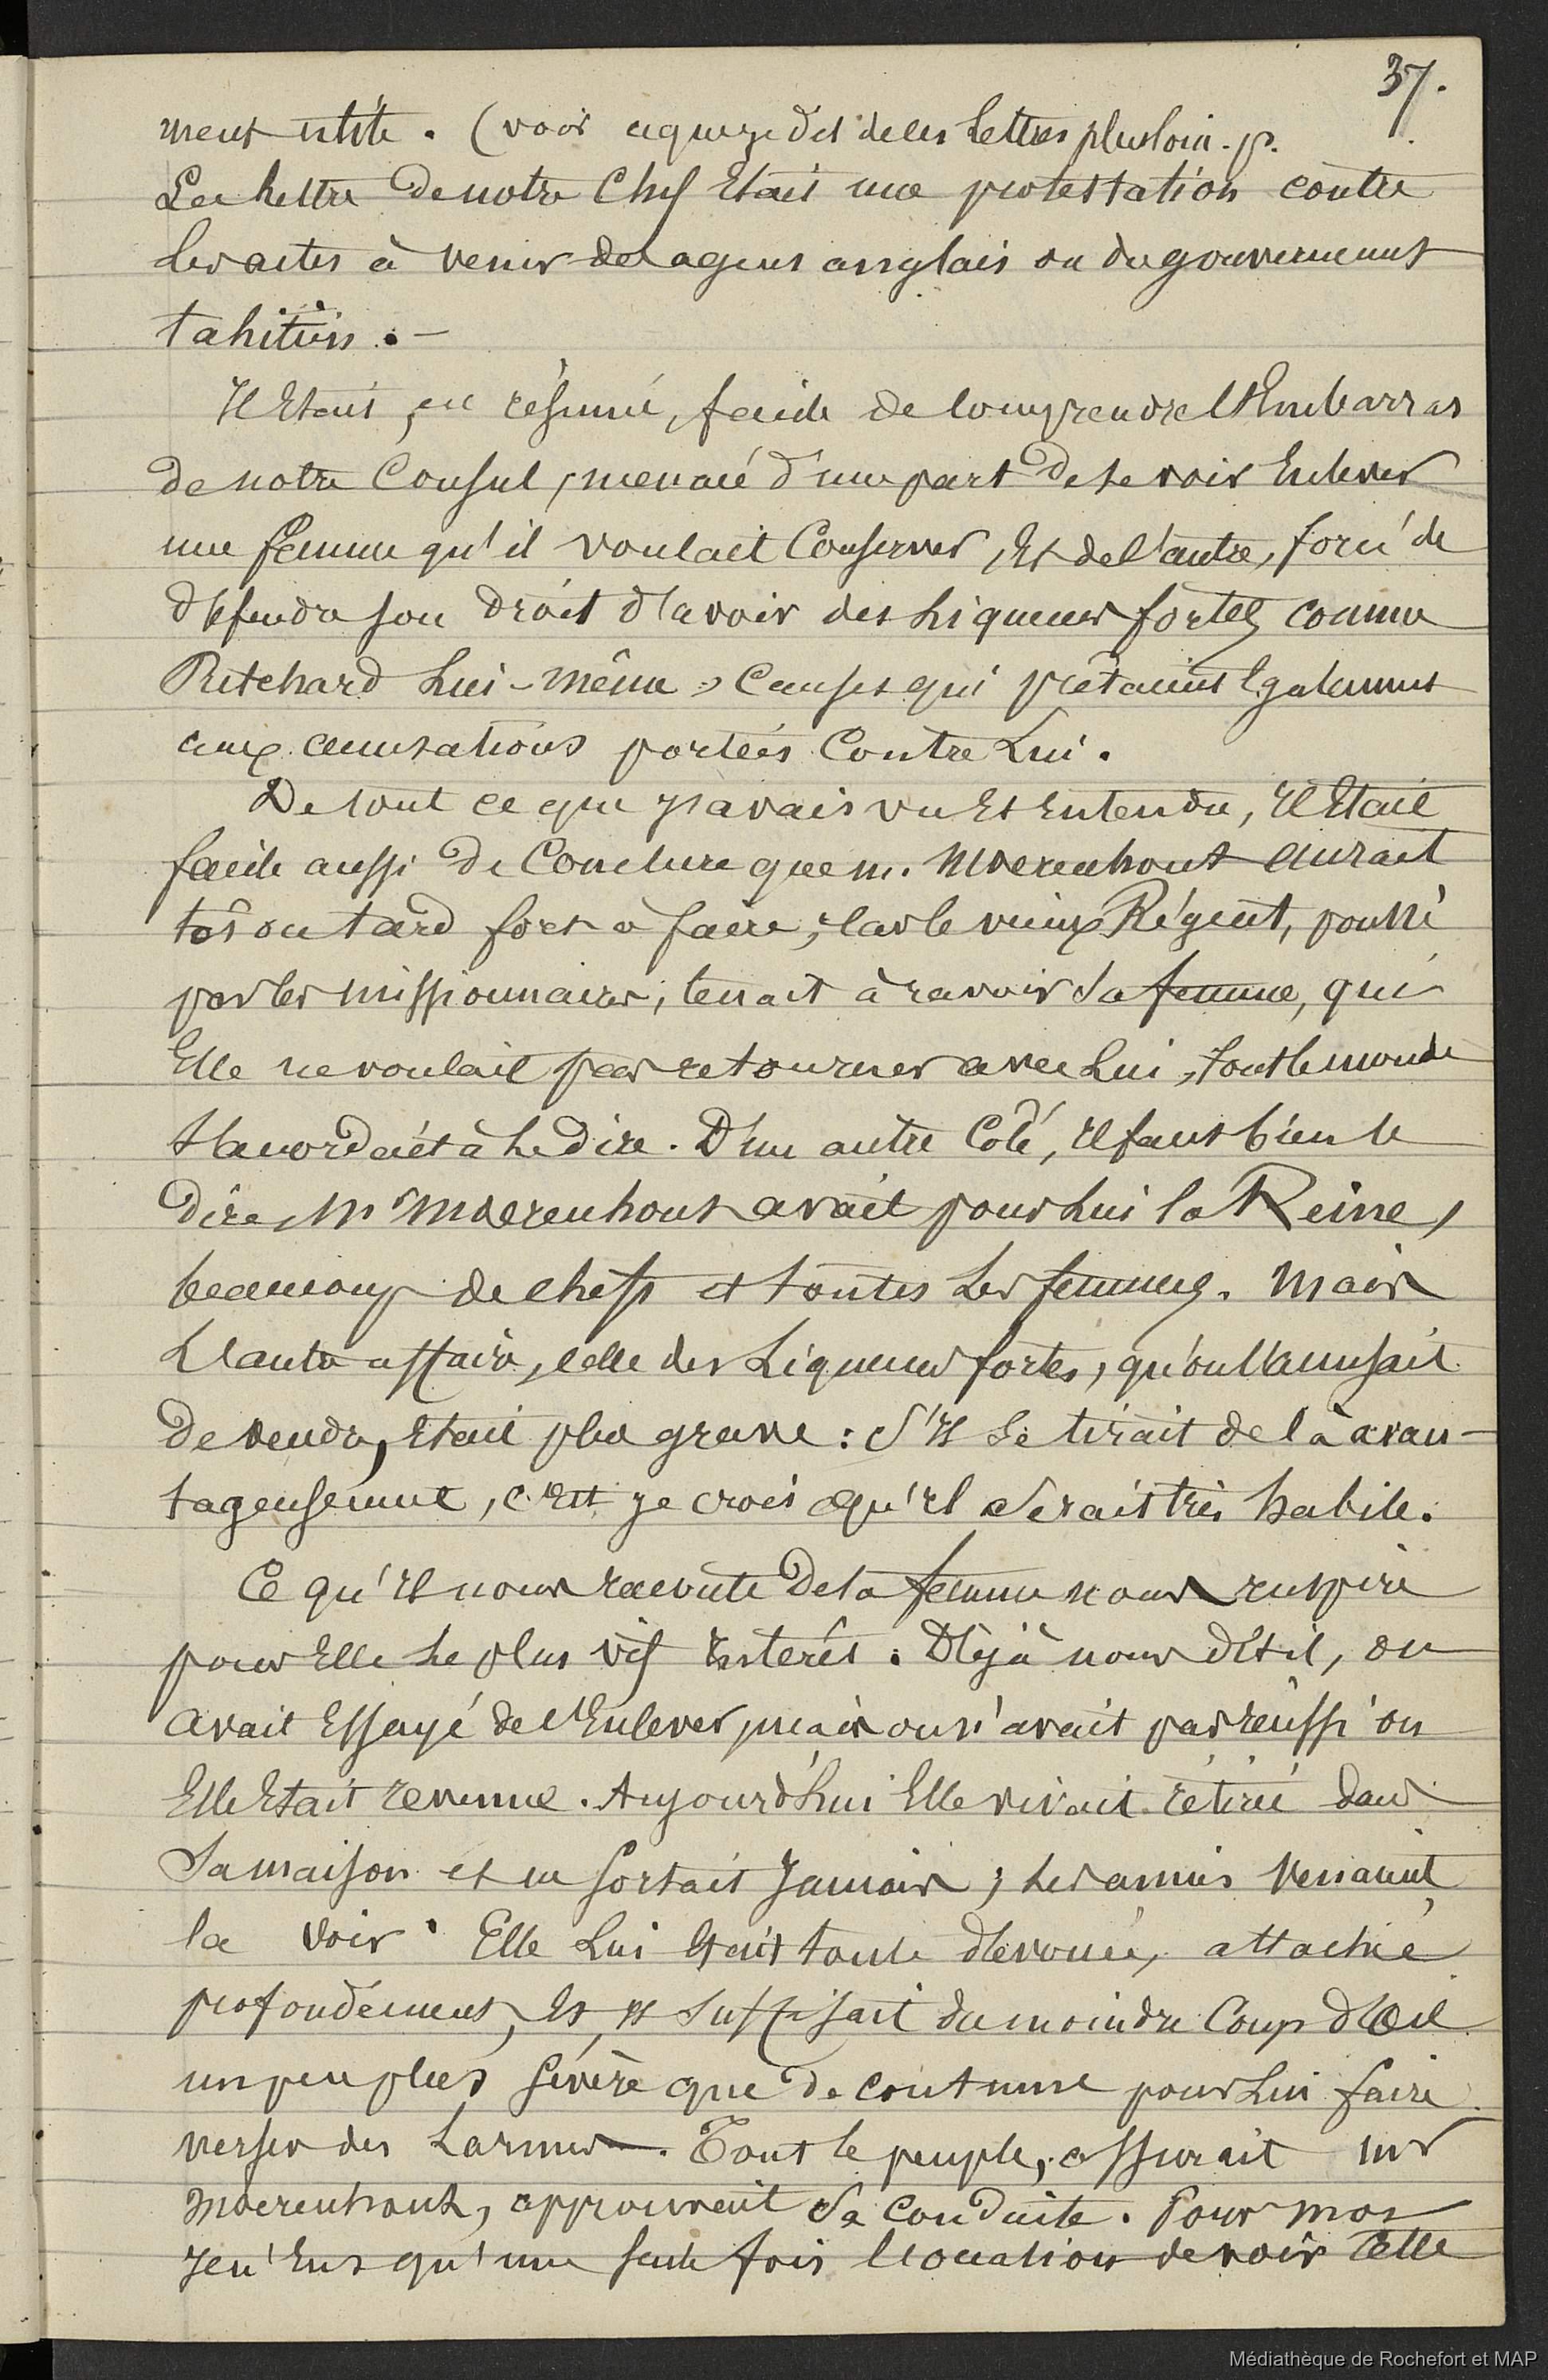 37.
ment utile. (voir ce que je dis de ces Lettres plus loin. p.
La Lettre de notre Chef Etait une protestation contre
les actes à venir des agens anglais ou du gouvernement
tahitien. –
Il Etait, en résumé, facile de comprendre l'Embarras
de notre Consul, menacé d'une part de se voir Enlever
une femme qu'il voulait Conserver, Et de l'autre, forcé de
défendre son droit d'avoir des Liqueurs fortes comme
Pritchard Lui-même, Causes qui prêtaient Egalement
aux accusations portées Contre Lui.
De tout ce que j'avais vu Et Entendu, Il Etait
facile aussi de Conclure que M. Moerenhout aurait
tôt ou tard fort à faire, car le vieux Régent, poussé
par les missionnaires, tenait à ravoir sa femme, qui
Elle ne voulait pas retourner avec Lui, tout le monde
s'accordait à le dire. D'un autre Coté, Il faut bien le
dire, Mr Moerenhout avait pour Lui la Reine,
beaucoup de chefs et toutes les femmes. Mais
L'autre affaire, celle des Liqueurs fortes, qu'on l'accusait
de vendre, Etait plus grave : s'Il se tirait de là avan-
tageusement, c'Est je crois qu'Il serait très habile.
Ce qu'Il nous raconte de sa femme nous inspire
pour Elle le plus vif Intérêt. Déjà nous dit-il, on
avait Essayé de l'Enlever, mais on n'avait pas réussi ou
Elle Etait revenue. Aujourd'hui Elle vivait rétirée dans
sa maison et ne sortait Jamais ; les amies venaient
la voir. Elle Lui Etait toute dévouée, attachée
profondément, Et Il suffisait du moindre Coup d'Oeil
un peu plus sévère que de coutume pour Lui faire
verser des Larmes. Tout le peuple, assurait Mr
Moerenhout, approuvait sa Conduite. Pour moi
Je n'Eus qu'une seule fois l'occasion de voir Cette
Médiathèque de Rochefort et MAP